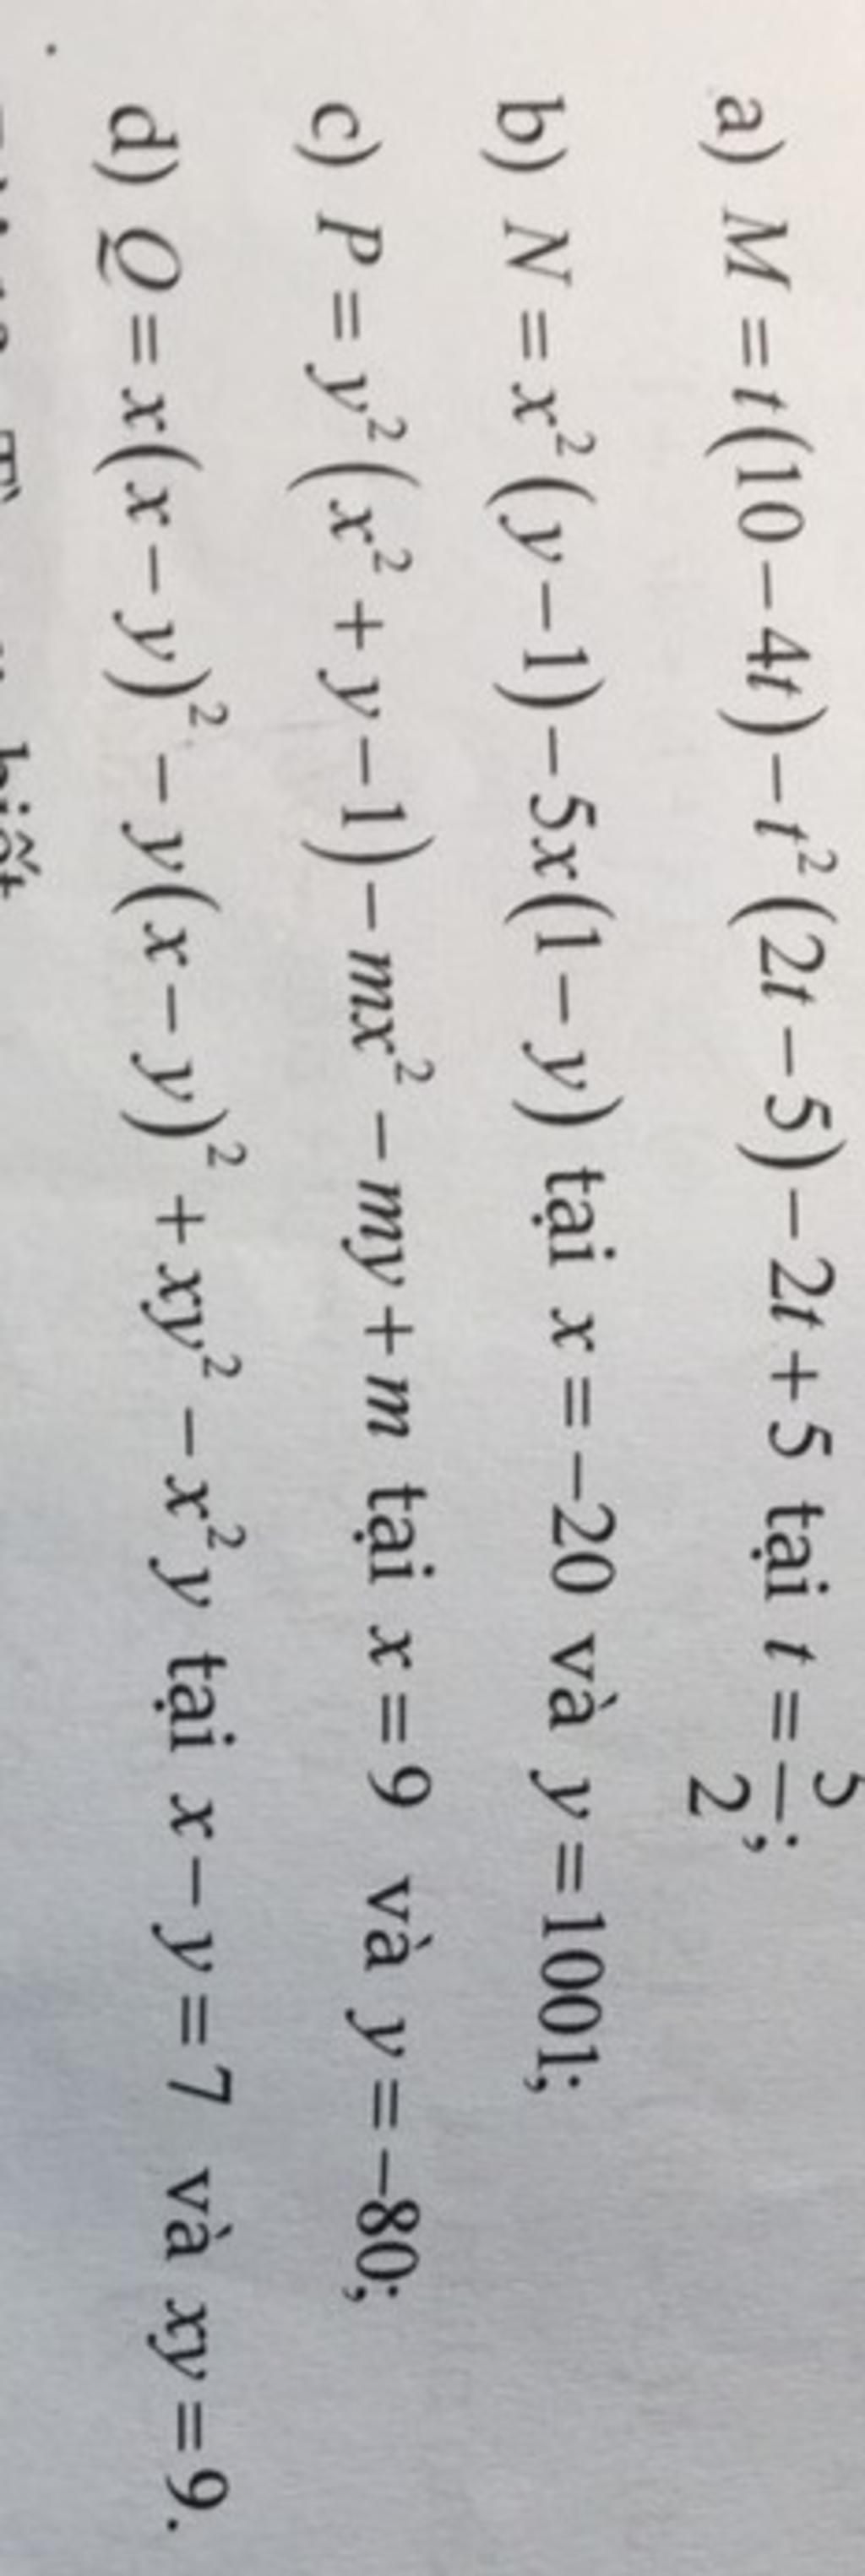 a) M = t(10 − 4t) − t²(2t − 5) − 2t + 5 tại t = 5/2;
b) N = x²(y − 1) − 5x(1 − y) tại x = −20 và y = 1001;
c) P = y²(x² + y − 1) − mx² − my + m tại x = 9 và y = −80;
d) Q = x(x − y)² − y(x − y)² + xy² − x²y tại x − y = 7 và xy = 9.